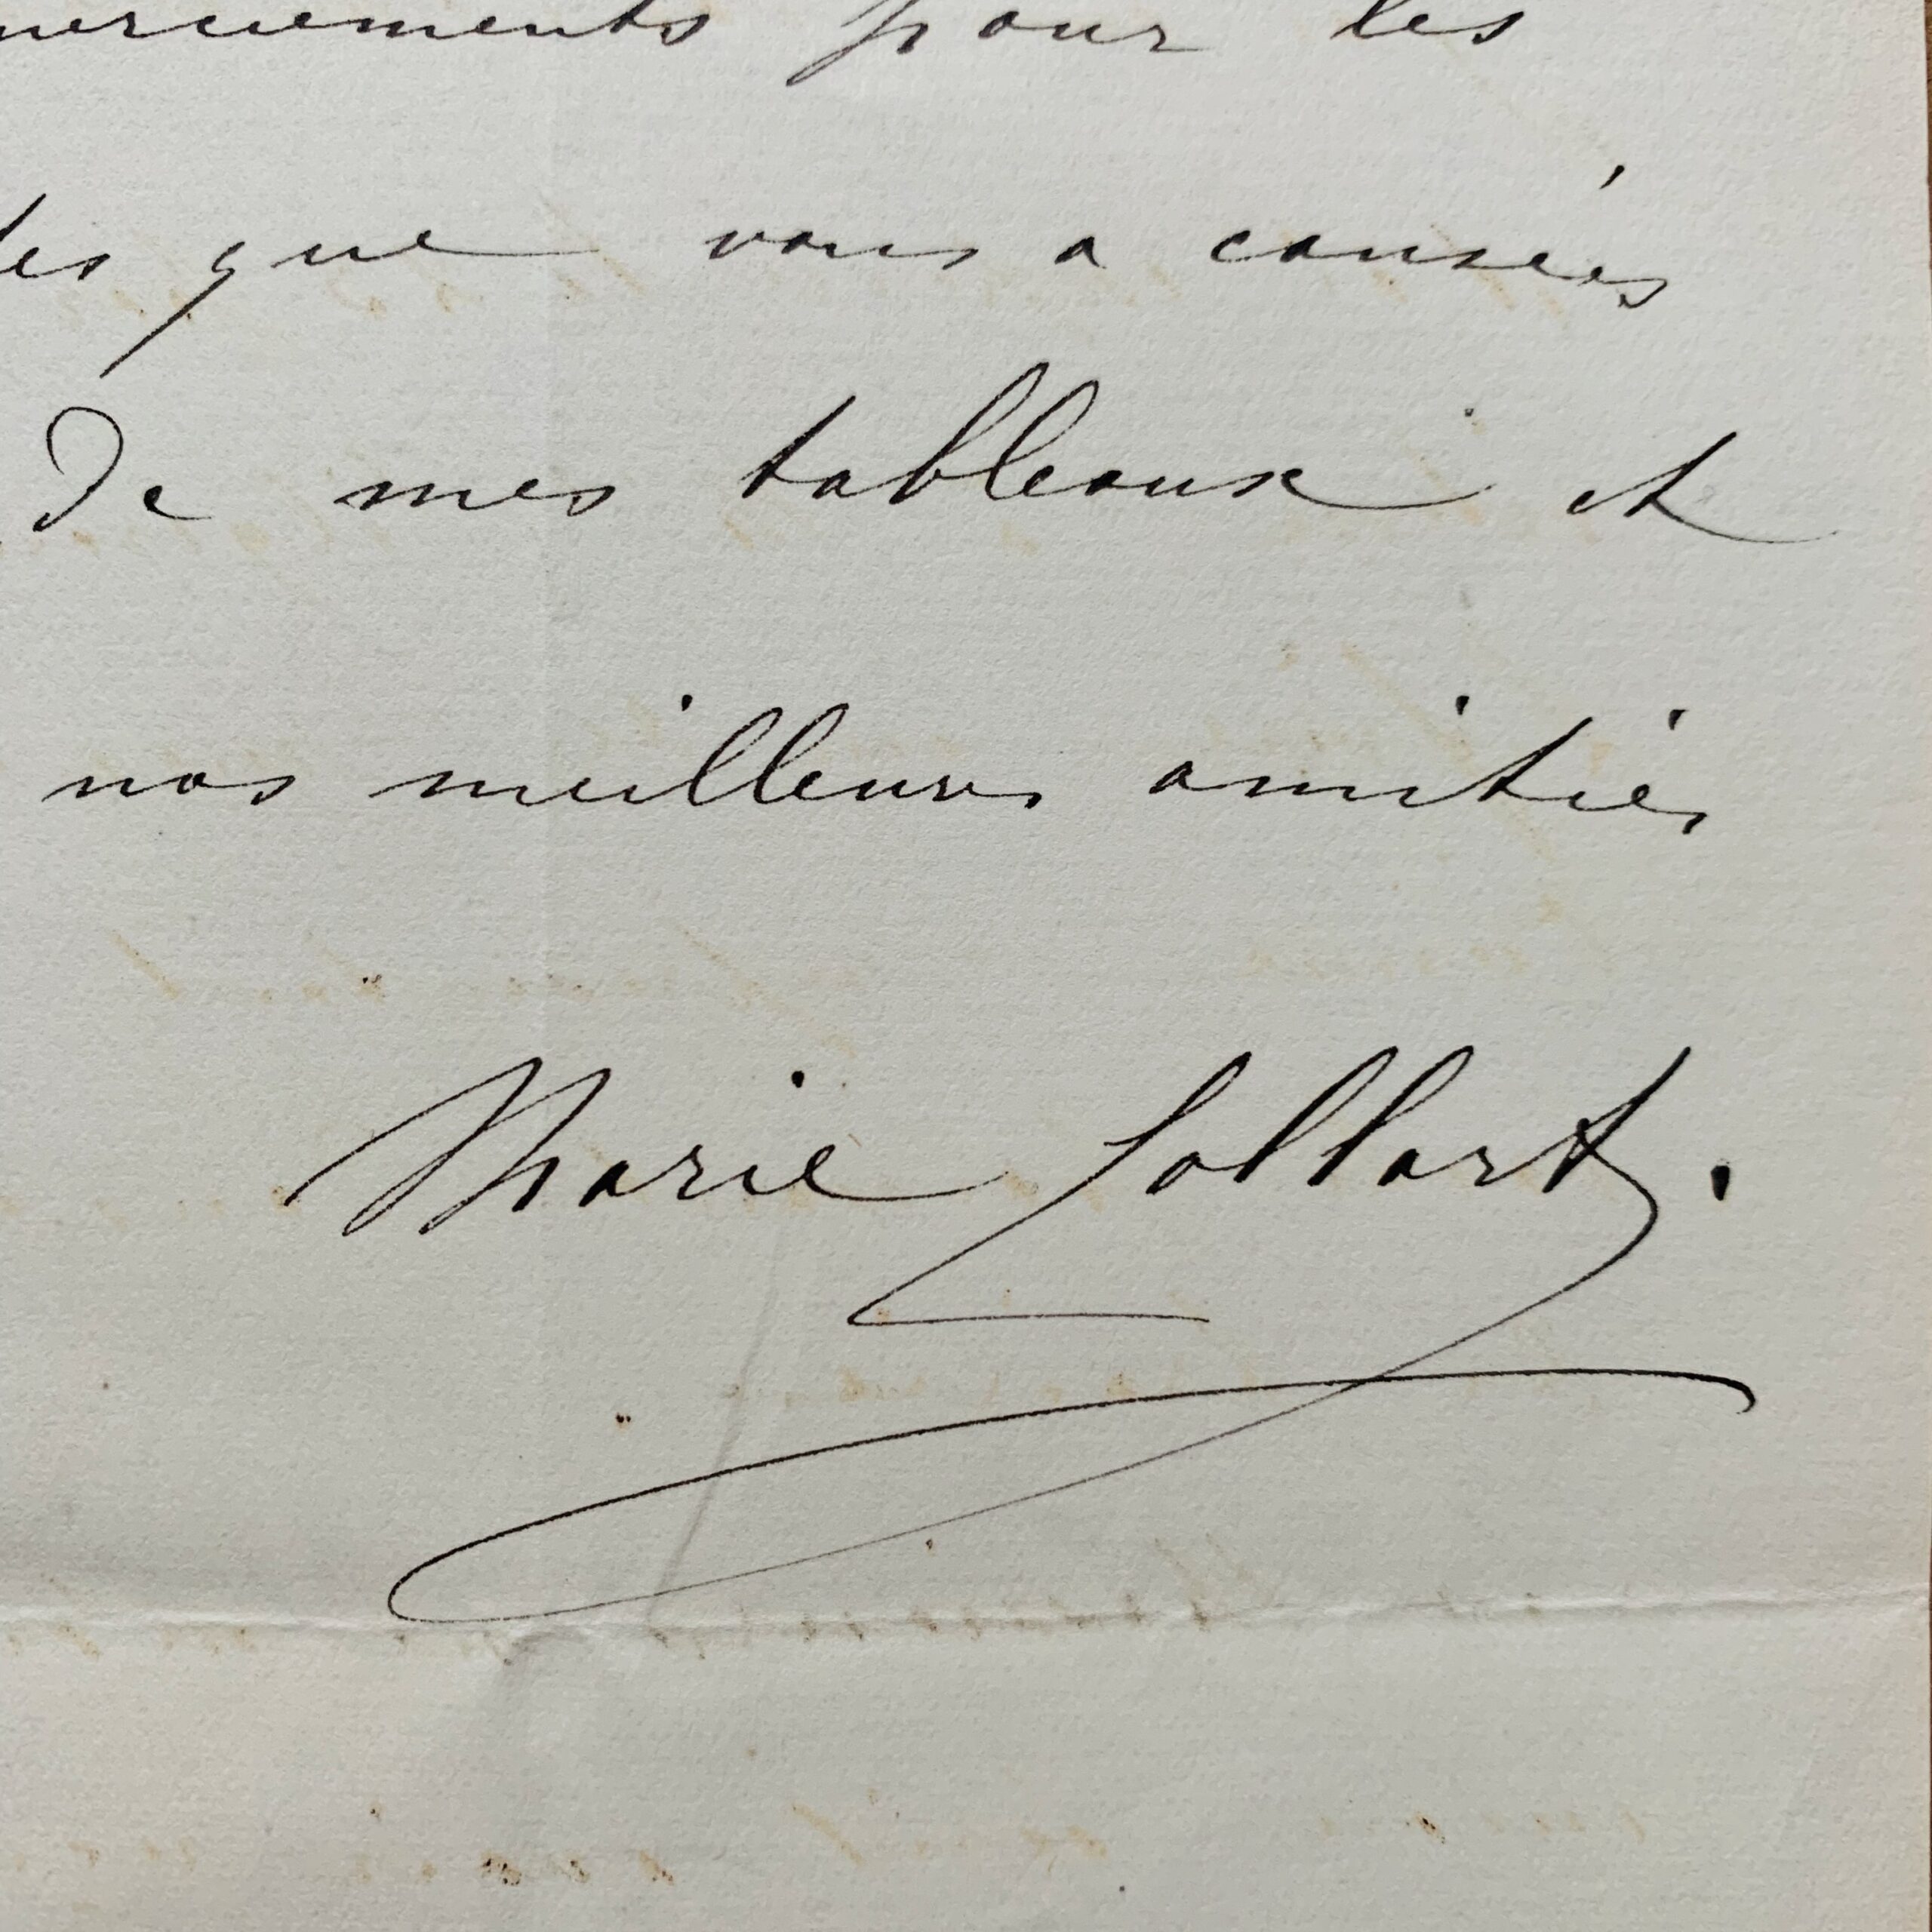 merciements pour les
tes que vous a causées
De mes tableaux et
nos meilleures amitiés
Marie Collart.